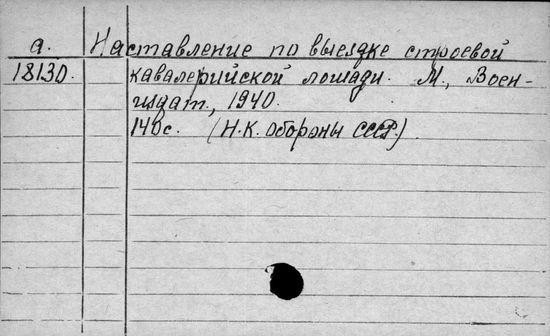 а. Наставление по выездке строевой
18130. кавалерийской лошади. М., Воен-
издат, 1940.
140с. (Н.К. обороны СССР.)